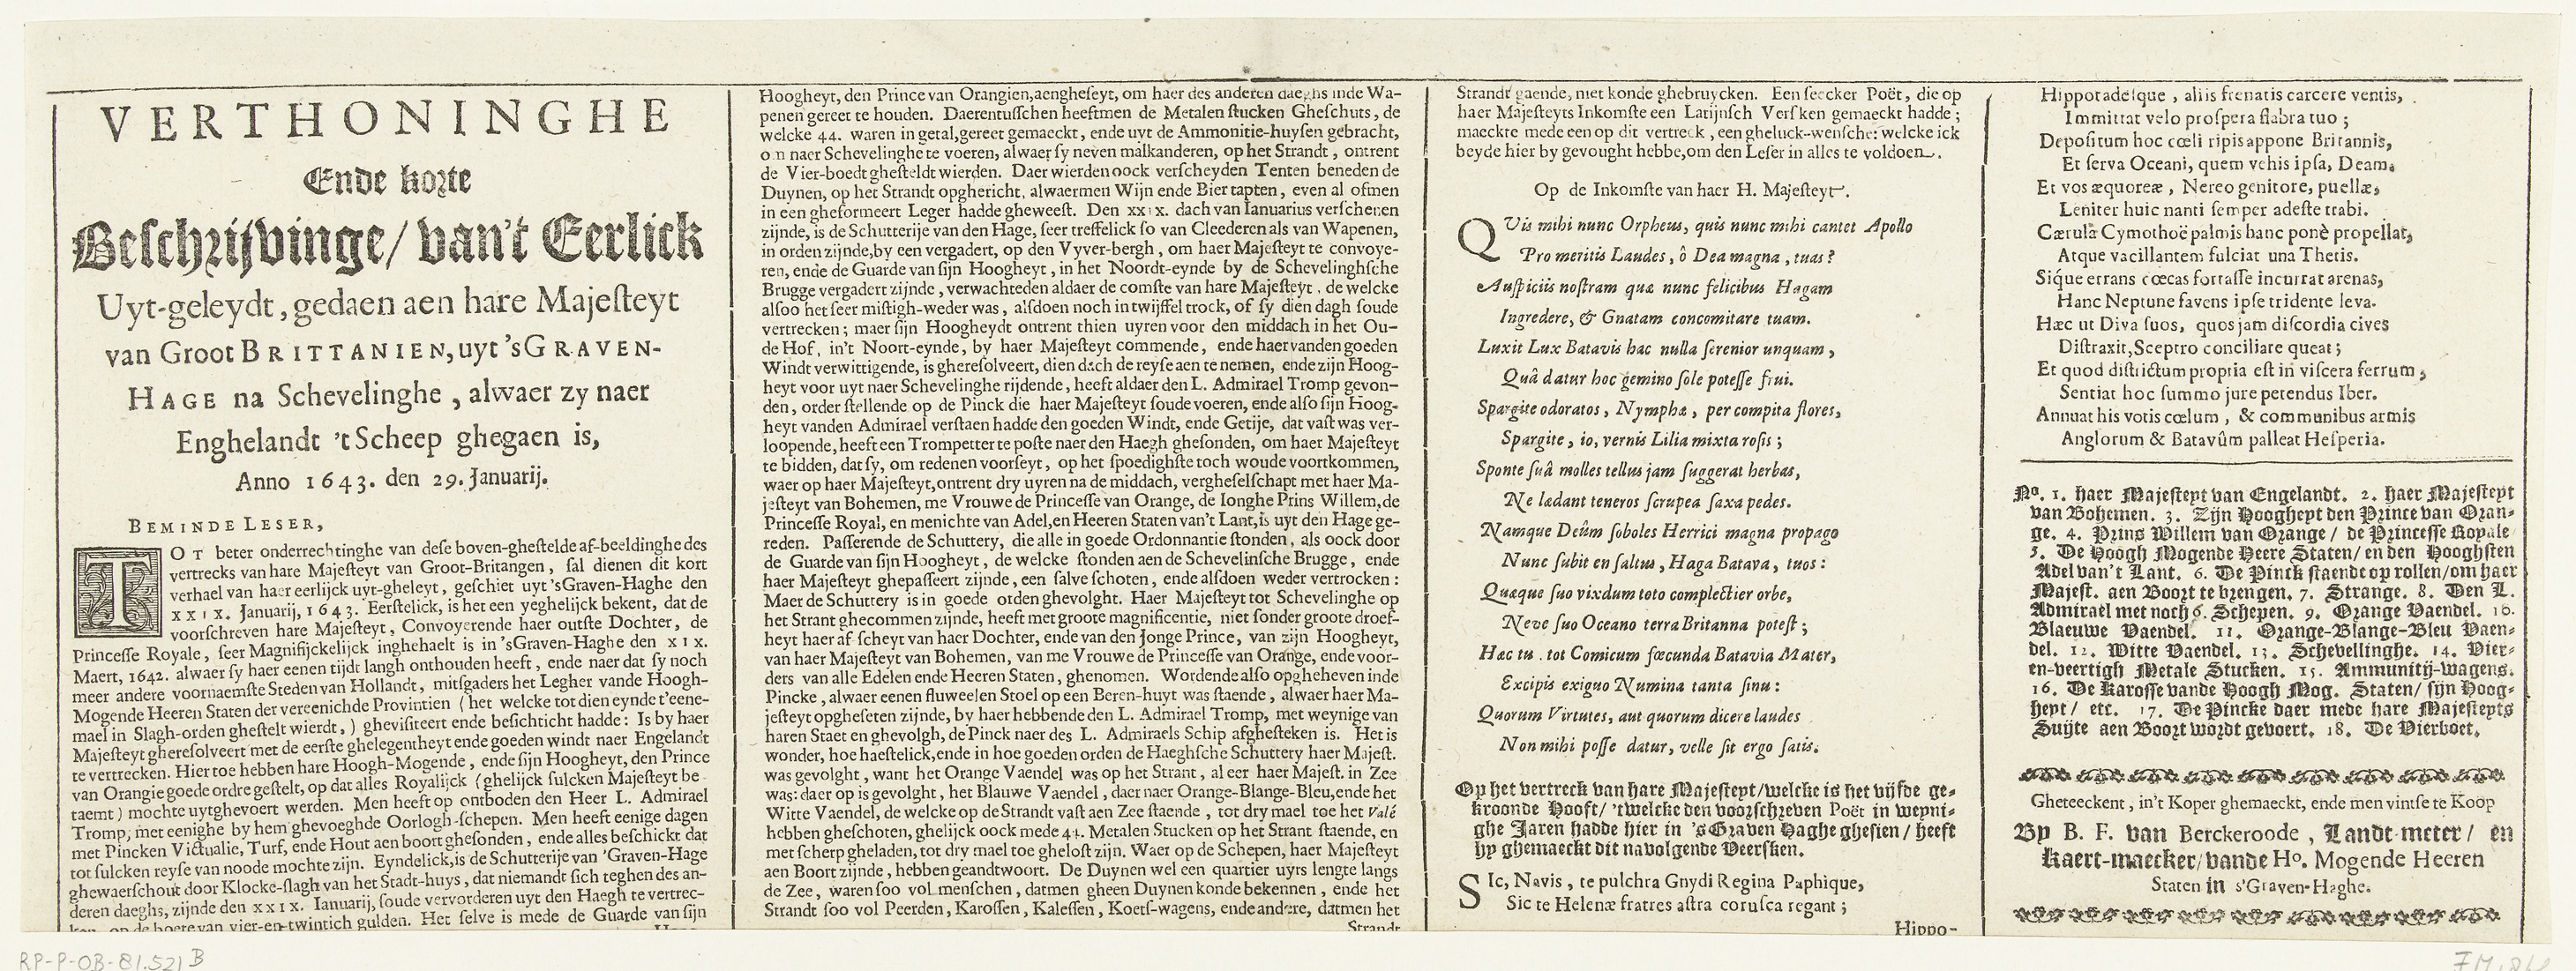 VERTHONINGHE
Ende korte
Beschrijvinge/ van't Eerlick
Uyt-geleydt, gedaen aen hare Majesteyt
van Groot BRITTANIEN, uyt 'sGRAVEN-
HAGE na Schevelinghe, alwaer zy naer
Enghelandt 't Scheep ghegaen is,
Anno 1643. den 29. Januarij.
BEMINDE LESER,
TOT beter onderrechtinghe van dese boven-ghestelde af-beeldinghe des
vertrecks van hare Majesteyt van Groot-Britangen, sal dienen dit kort
verhael van haer eerlijck uyt-gheleyt, geschiet uyt 'sGraven-Haghe den
XXIX. Januarij, 1643. Eerstelick, is het een yeghelijck bekent, dat de
voorschreven hare Majesteyt, Convoyerende haer outste Dochter, de
Princesse Royale, seer Magnifijckelijck inghehaelt is in 'sGraven-Haghe den XIX.
Maert, 1642. alwaer sy haer eenen tijdt langh onthouden heeft, ende naer dat sy noch
meer andere voornaemste Steden van Hollandt, mitsgaders het Legher vande Hoogh-
Mogende Heeren Staten der vereenichde Provintien (het welcke tot dien eynde t'eene-
mael in Slagh-orden ghestelt wierdt,) ghevisiteert ende besichticht hadde: Is by haer
Majesteyt gheresolveert met de eerste ghelegentheyt ende goeden windt naer Engelandt
te vertrecken. Hier toe hebben hare Hoogh-Mogende, ende sijn Hoogheyt, den Prince
van Orangie goede ordre gestelt, op dat alles Royalijck (ghelijck sulcken Majesteyt be-
taemt) mochte uytghevoert werden. Men heeft op ontboden den Heer L. Admirael
Tromp, met eenighe by hem ghevoeghde Oorlogh-schepen. Men heeft eenige dagen
met Pincken Victualie, Turf, ende Hout aen boort ghesonden, ende alles beschickt dat
tot sulcken reyse van noode mochte zijn. Eyndelick, is de Schutterije van 'Graven-Hage
ghewaerschout door Klocke-slagh van het Stadt-huys, dat niemandt sich teghen des an-
deren daeghs, zijnde den XXIX. Ianuarij, soude vervorderen uyt den Haegh te vertrec-
ken, op de boete van vier-en-twintich gulden. Het selve is mede de Guarde van sijn
Hoogheyt, den Prince van Orangien, aengheseyt, om haer des anderen daeghs inde Wa-
penen gereet te houden. Daerentusschen heeftmen de Metalen stucken Gheschuts, de
welcke 44. waren in getal, gereet gemaeckt, ende uyt de Ammonitie-huysen gebracht,
om naer Schevelinghe te voeren, alwaer sy neven malkanderen, op het Strandt, ontrent
de Vier-boedt ghesteldt wierden. Daer wierden oock verscheyden Tenten beneden de
Duynen, op het Strandt opghericht, alwaermen Wijn ende Bier tapten, even al ofmen
in een gheformeert Leger hadde gheweest. Den XXIX. dach van Ianuarius verschenen
zijnde, is de Schutterije van den Hage, seer treffelick so van Cleederen als van Wapenen,
in orden zijnde, by een vergadert, op den Vyver-bergh, om haer Majesteyt te convoye-
ren, ende de Guarde van sijn Hoogheyt, in het Noordt-eynde by de Schevelinghsche
Brugge vergadert zijnde, verwachteden aldaer de comste van hare Majesteyt, de welcke
alsoo het seer mistigh-weder was, alsdoen noch in twijffel trock, of sy dien dagh soude
vertrecken; maer sijn Hoogheydt ontrent thien uyren voor den middach in het Ou-
de Hof, in't Noort-eynde, by haer Majesteyt commende, ende haer vanden goeden
Windt verwittigende, is gheresolveert, dien dach de reyse aen te nemen, ende zijn Hoog-
heyt voor uyt naer Schevelinghe rijdende, heeft aldaer den L. Admirael Tromp gevon-
den, order stellende op de Pinck die haer Majesteyt soude voeren, ende also sijn Hoog-
heyt vanden Admirael verstaen hadde den goeden Windt, ende Getije, dat vast was ver-
loopende, heeft een Trompetter te poste naer den Haegh ghesonden, om haer Majesteyt
te bidden, dat sy, om redenen voorseyt, op het spoedighste toch woude voortkommen,
waer op haer Majesteyt, ontrent dry uyren na de middach, vergheselschapt met haer Ma-
jesteyt van Bohemen, me Vrouwe de Princesse van Orange, de Ionghe Prins Willem, de
Princesse Royal, en menichte van Adel, en Heeren Staten van't Lant, is uyt den Hage ge-
reden. Passerende de Schuttery, die alle in goede Ordonnantie stonden, als oock door
de Guarde van sijn Hoogheyt, de welcke stonden aen de Schevelinsche Brugge, ende
haer Majesteyt ghepasseert zijnde, een salve schoten, ende alsdoen weder vertrocken:
Maer de Schuttery is in goede orden ghevolght. Haer Majesteyt tot Schevelinghe op
het Strant ghecommen zijnde, heeft met groote magnificentie, niet sonder groote droef-
heyt haer af scheyt van haer Dochter, ende van den Jonge Prince, van zijn Hoogheyt,
van haer Majesteyt van Bohemen, van me Vrouwe de Princesse van Orange, ende voor-
ders van alle Edelen ende Heeren Staten, ghenomen. Wordende also opgheheven inde
Pincke, alwaer eenen fluweelen Stoel op een Beren-huyt was staende, alwaer haer Ma-
jesteyt opgheseten zijnde, by haer hebbende den L. Admirael Tromp, met weynige van
haren Staet en ghevolgh, de Pinck naer des L. Admiraels Schip afghesteken is. Het is
wonder, hoe haestelick, ende in hoe goeden orden de Haeghsche Schuttery haer Majest.
was gevolght, want het Orange Vaendel was op het Strant, al eer haer Majest. in Zee
was: daer op is gevolght, het Blauwe Vaendel, daer naer Orange-Blange-Bleu, ende het
Witte Vaendel, de welcke op de Strandt vast aen Zee staende, tot dry mael toe het Valé
hebben gheschoten, ghelijck oock mede 44. Metalen Stucken op het Strant staende, en
met scherp gheladen, tot dry mael toe ghelost zijn. Waer op de Schepen, haer Majesteyt
aen Boort zijnde, hebben geandtwoort. De Duynen wel een quartier uyrs lengte langs
de Zee, waren soo vol menschen, datmen gheen Duynen konde bekennen, ende het
Strandt soo vol Peerden, Karossen, Kalessen, Koets-wagens, ende andere, datmen het
Strandt
Strandt gaende, niet konde ghebruycken. Een seecker Poët, die op
haer Majesteyts Inkomste een Latijnsch Versken gemaeckt hadde;
maeckte mede een op dit vertreck, een gheluck-wensche: welcke ick
beyde hier by gevought hebbe, om den Leser in alles te voldoen.
Op de Inkomste van haer H. Majesteyt.
QVis mihi nunc Orpheus, quis nunc mihi cantet Apollo
Pro meritis Laudes, ô Dea magna, tuas?
Auspiciis nostram quæ nunc felicibus Hagam
Ingredere, & Gnatam concomitare tuam.
Luxit Lux Batavis hac nulla serenior unquam,
Quâ datur hoc gemino sole potesse frui.
Spargite odoratos, Nymphæ, per compita flores,
Spargite, io, vernis Lilia mixta rosis;
Sponte suâ molles tellus jam suggerat herbas,
Ne lædant teneros scrupea saxa pedes.
Namque Deûm soboles Herrici magna propago
Nunc subit en saltus, Haga Batava, tuos:
Quæque suo vixdum toto complectier orbe,
Neve suo Oceano terra Britanna potest;
Hæc tu tot Comicum fœcunda Batavia Mater,
Excipis exiguo Numina tanta sinu:
Quorum Virtutes, aut quorum dicere laudes
Non mihi posse datur, velle sit ergo satis.
Op het vertreck van hare Majesteyt/ welcke is het vijfde ge-
kroonde Hooft/ 'twelcke den voorschreven Poët in weyni-
ghe Jaren hadde hier in 'sGraven Haghe ghesien/ heeft
hy ghemaeckt dit navolgende Veersken.
SIc, Navis, te pulchra Gnydi Regina Paphique,
Sic te Helenæ fratres astra corusca regant;
Hippo-
Hippotadesque, aliis frenatis carcere ventis,
Immittat velo prospera flabra tuo;
Depositum hoc cœli ripis appone Britannis,
Et serva Oceani, quem vehis ipsa, Deam.
Et vos æquoreæ, Nereo genitore, puellæ,
Leniter huic nanti semper adeste trabi.
Cærula Cymothoë palmis hanc ponè propellat,
Atque vacillantem fulciat una Thetis.
Sique errans cœcas fortasse incurrat arenas,
Hanc Neptune favens ipse tridente leva.
Hæc ut Diva suos, quos jam discordia cives
Distraxit, Sceptro conciliare queat;
Et quod districtum propria est in viscera ferrum,
Sentiat hoc summo jure petendus Iber.
Annuat his votis cœlum, & communibus armis
Anglorum & Batavûm palleat Hesperia.
No. 1. haer Majesteyt van Engelandt. 2. haer Majesteyt
van Bohemen. 3. Zijn Hoogheyt den Prince van Oran-
ge. 4. Prins Willem van Orange/ de Princesse Royale
5. De Hoogh Mogende Heere Staten/ en den Hooghsten
Adel van't Lant. 6. De Pinck staende op rollen/ om haer
Majest. aen Boort te brengen. 7. Strange. 8. Den L.
Admirael met noch 6. Schepen. 9. Orange Vaendel. 10.
Blaeuwe Vaendel. 11. Orange-Blange-Bleu Vaen-
del. 12. Witte Vaendel. 13. Schevellinghe. 14. Vier-
en-veertigh Metale Stucken. 15. Ammunitij-wagens.
16. De Karosse vande Hoogh Mog. Staten/ sijn Hoog-
heyt/ etc. 17. De Pincke daer mede hare Majesteyts
Suijte aen Boort wordt gevoert. 18. De Vierboet.
Gheteeckent, in't Koper ghemaeckt, ende men vintse te Koop
By B. F. van Berckeroode, Landt-meter/ en
kaert-maecker/ vande Ho. Mogende Heeren
Staten in s'Graven-Haghe.
RP-P-OB-81.521 B